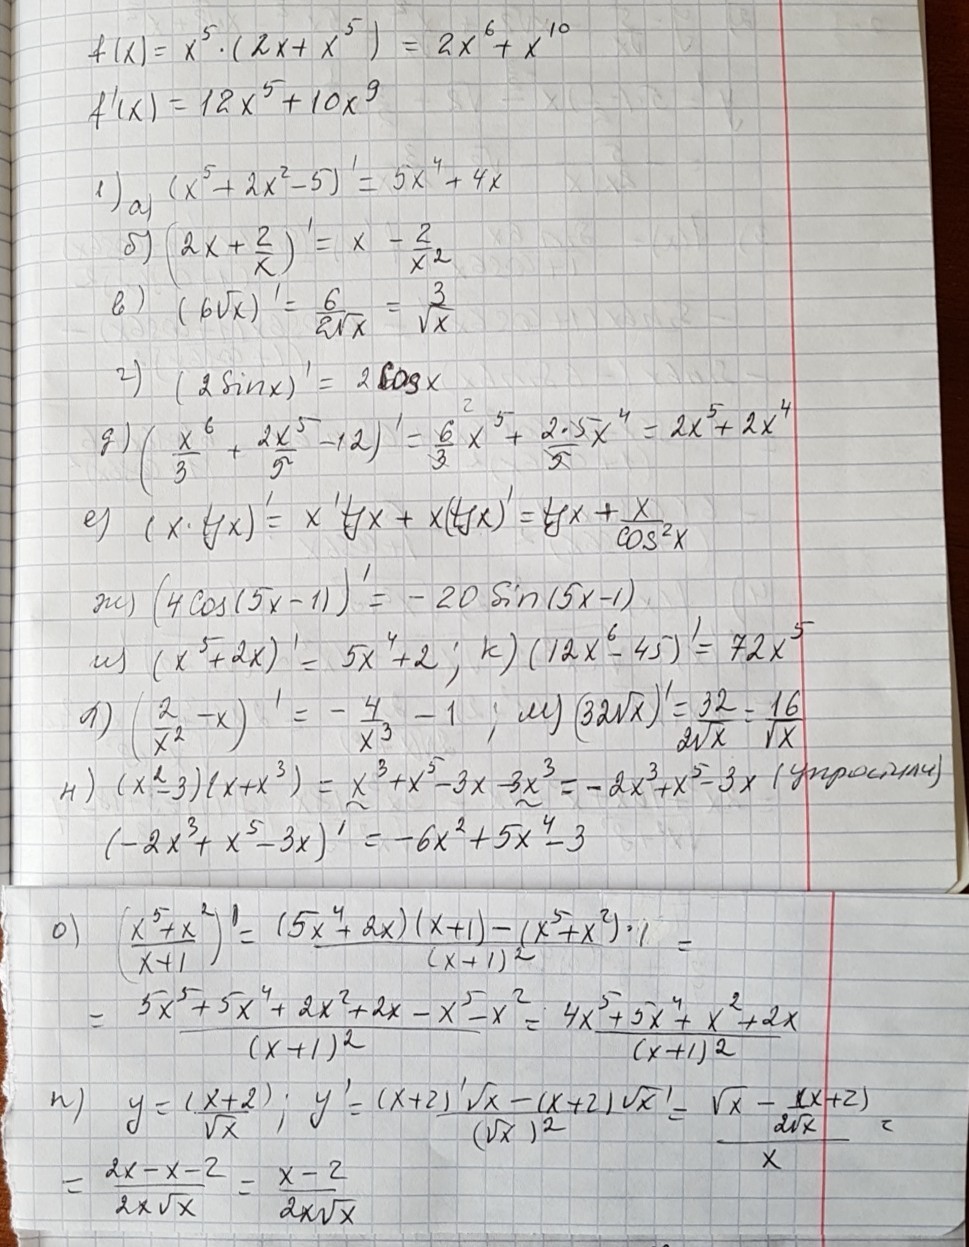 f(x) = x⁵ · (2x + x⁵) = 2x⁶ + x¹⁰
f'(x) = 12x⁵ + 10x⁹
1) а) (x⁵ + 2x² - 5)' = 5x⁴ + 4x
б) (2x + 2/x)' = x - 2/x²
в) (6√x)' = 6/(2√x) = 3/√x
г) (2 Sinx)' = 2 Cosx
д) (x⁶/3 + 2x⁵/5 - 12)' = 6/3 x⁵ + (2·5)/5 x⁴ = 2x⁵ + 2x⁴
е) (x · tgx)' = x' tgx + x(tgx)' = tgx + x/cos²x
ж) (4 cos(5x - 1))' = -20 Sin(5x-1)
и) (x⁵ + 2x)' = 5x⁴ + 2 ; к) (12x⁶ - 45)' = 72x⁵
л) (2/x² - x)' = - 4/x³ - 1 ; м) (32√x)' = 32/(2√x) = 16/√x
н) (x² - 3)(x + x³) = x³ + x⁵ - 3x - 3x³ = -2x³ + x⁵ - 3x (упростили)
(-2x³ + x⁵ - 3x)' = -6x² + 5x⁴ - 3
о) ((x⁵ + x²)/(x + 1))' = ((5x⁴ + 2x)(x + 1) - (x⁵ + x²) · 1)/(x + 1)² =
= (5x⁵ + 5x⁴ + 2x² + 2x - x⁵ - x²)/(x + 1)² = (4x⁵ + 5x⁴ + x² + 2x)/(x + 1)²
п) y = (x+2)/√x ; y' = ((x+2)'√x - (x+2)√x')/(√x)² = (√x - (x+2)/(2√x))/x =
= (2x - x - 2)/(2x√x) = (x - 2)/(2x√x)